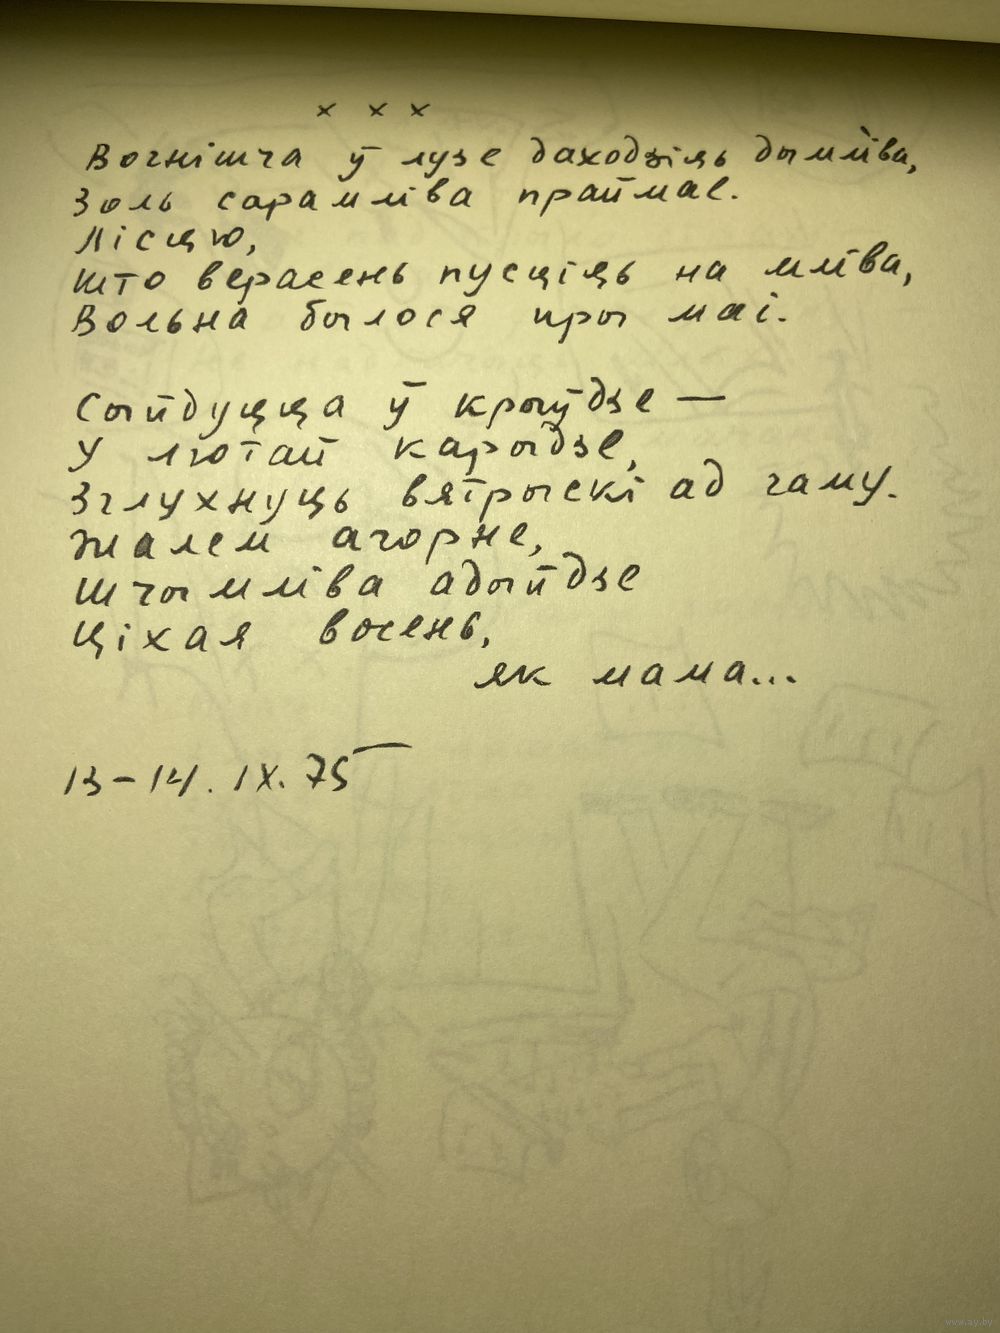 × × ×
Вогнішча ў лузе даходзіць дымліва,
Золь сарамліва праймае.
Лісцю,
што верасень пусціць на мліва,
Вольна былося пры маі.
Сыйдуцца ў крыўдзе —
У лютай карыдзе,
Зглухнуць вятрыскі ад гаму.
Жалем агорне,
Шчымліва адыйдзе
Ціхая восень,
як мама...
13-14. IX. 75
www.ay.by